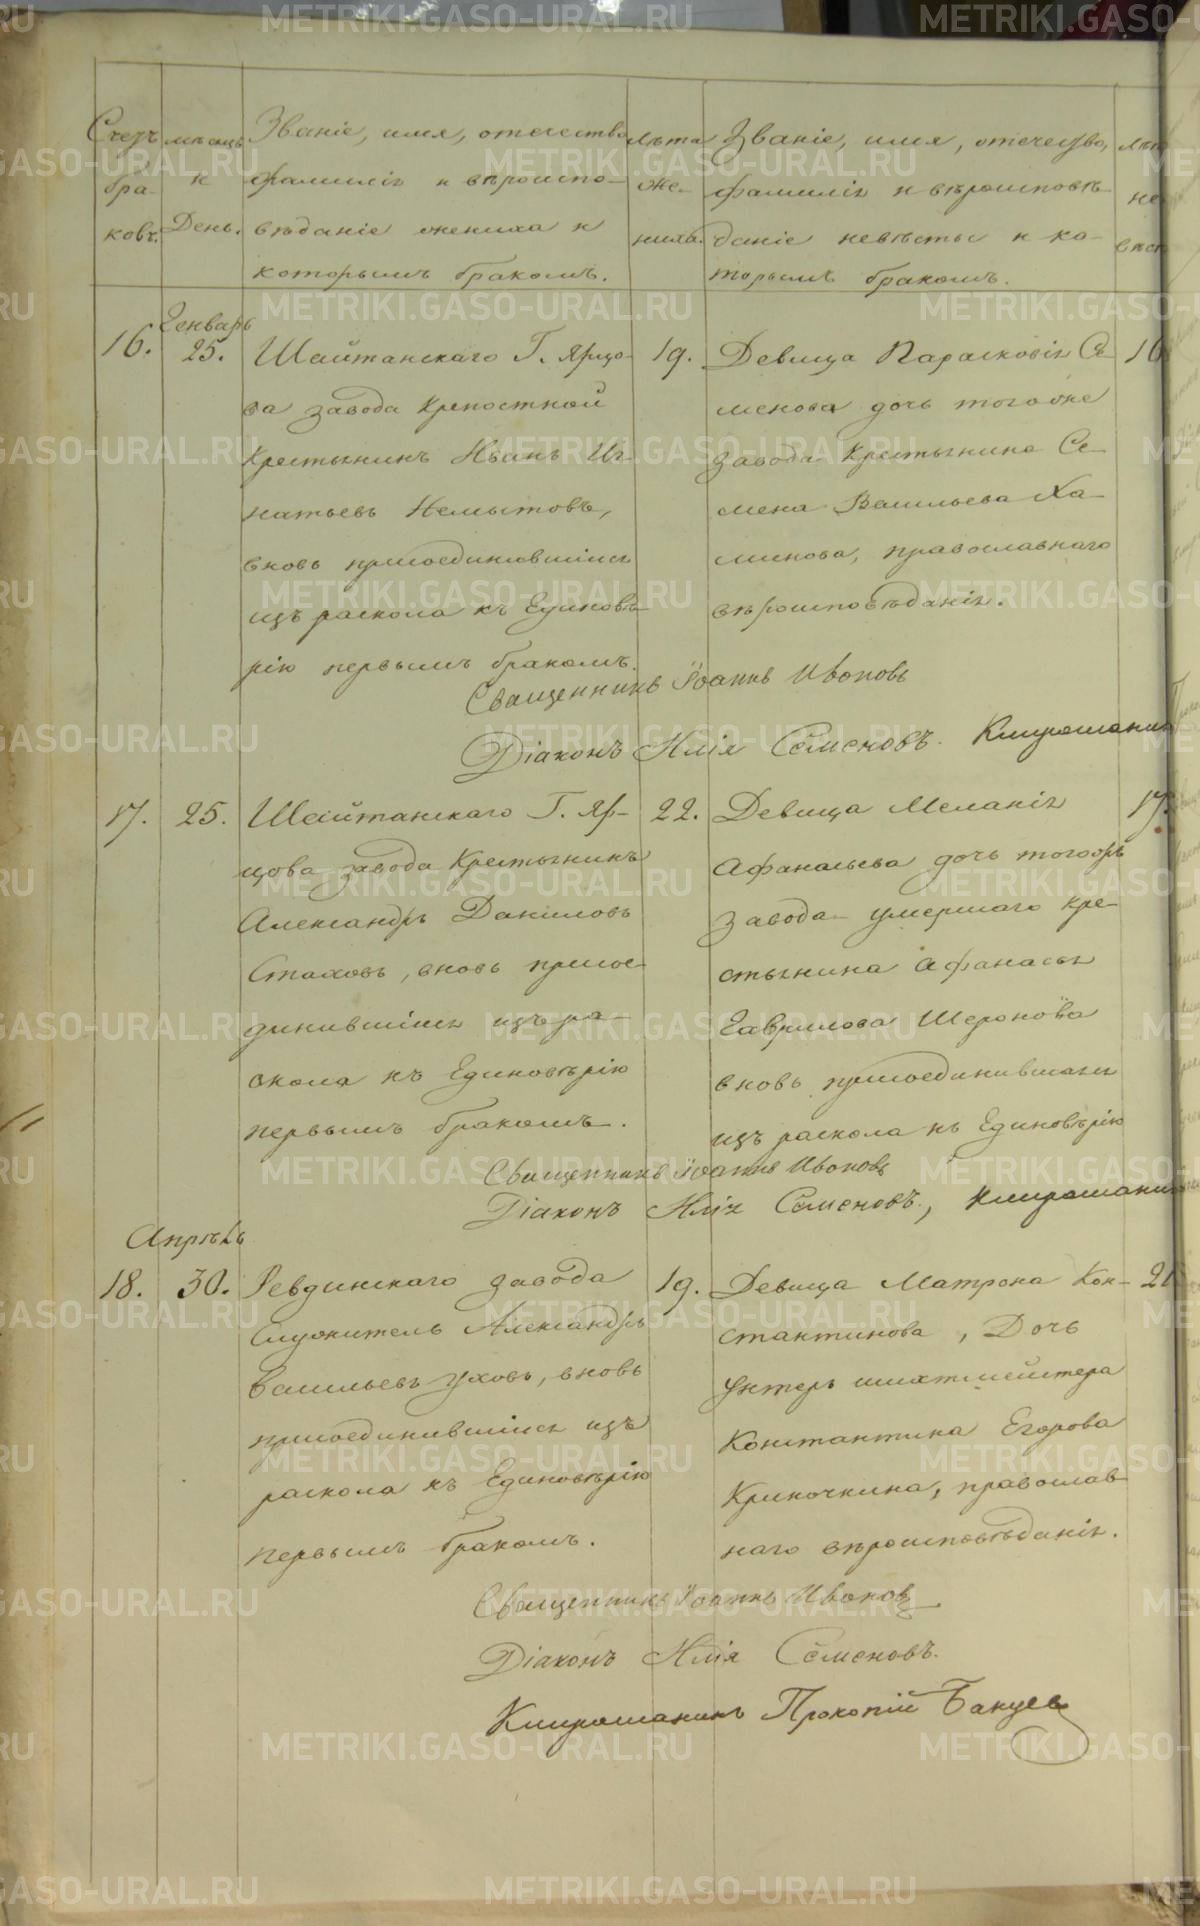 Счетъ
бра-
ковъ.
мѣсяцъ
и
День.
Званіе, имя, отечество
фамилія и вѣроиспо-
вѣданіе жениха и
которымъ бракомъ.
Лѣта
же-
ниха.
Званіе, имя, отечество,
фамилія и вѣроисповѣ-
даніе невѣсты и ко-
торымъ бракомъ.
16.
Генварь
25.
Шайтанскаго Г. Ярцо-
ва завода крепостной
Крестьянинъ Иванъ Иг-
натьевъ Немытовъ,
вновь присоединившійся
изъ раскола къ Единовѣ-
рію первымъ бракомъ.
19.
Девица Парасковія Се-
менова дочь тогоже
завода Крестьянина Се-
мена Васильева Ха-
минова, православнаго
вѣроисповѣданія.
16
Священникъ Іоаннъ Ивоновъ
Діаконъ Илія Семеновъ.
17.
25.
Шайтанскаго Г. Яр-
цова завода Крестьянинъ
Александръ Даниловъ
Стаховъ, вновь присое-
динившійся изъ ра-
скола къ Единовѣрію
первымъ бракомъ.
22.
Девица Меланія
Афанасьева дочь тогожъ
завода умершаго кре-
стьянина Афанасья
Гаврилова Шеронова
вновь присоединившаяся
изъ раскола къ Единовѣрію
17.
Священникъ Іоаннъ Ивоновъ
Діаконъ Илія Семеновъ,
Апрѣль
18.
30.
Ревдинскаго завода
Служитель Александръ
Васильевъ Уховъ, вновь
присоединившійся изъ
раскола къ Единовѣрію
первымъ бракомъ.
19.
Девица Матрона Кон-
стантинова, Дочь
Унтеръ шихтмейстера
Константина Егорова
Криночкина, православ-
наго вѣроисповѣданія.
21
Священникъ Іоаннъ Ивоновъ
Діаконъ Илія Семеновъ.
Прокопій
METRIKI.GASO-URAL.RU